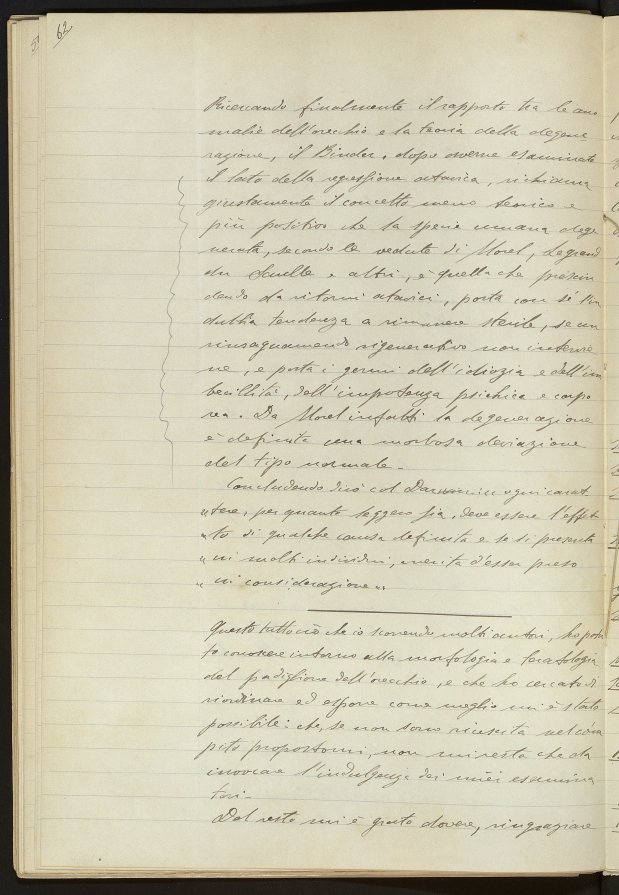 62
Ricercando finalmente il rapporto tra le ano
malie dell'orecchio e la teoria della degene
razione, il Binder, dopo averne esaminato
il lato della regressione atavica, richiama
giustamente il concetto meno teorico e
più positivo che la specie umana dege
nerata, secondo le vedute di Morel, Legrand
du Saulle e altri, è quella che prescin
dendo da ritorni atavici, porta con sé l'in
dubbia tendenza a rimanere sterile, se un
rinsanguamento rigenerativo non intervie
ne, e porta i germi dell'idiozia e dell'im
becillità, dell'impotenza psichica e corpo
rea. Da Morel infatti la degenerazione
è definita una morbosa deviazione
del tipo normale.
Concludendo dirò col Darwin ogni carat
"tere, per quanto leggero sia, deve essere l'effet
"to di qualche causa definita e se si presenta
"in molti individui, merita d'esser preso
"in considerazione".
Questo tutto ciò che io scorrendo molti autori, ho potu
to conoscere intorno alla morfologia e teratologia
del padiglione dell'orecchio, e che ho cercato di
riordinare ed esporre come meglio mi è stato
possibile: che, se non sono riuscita nel còm
pito propostomi, non mi resta che da
invocare l'indulgenza dei miei esamina
tori.
Del resto mi è grato dovere, ringraziare